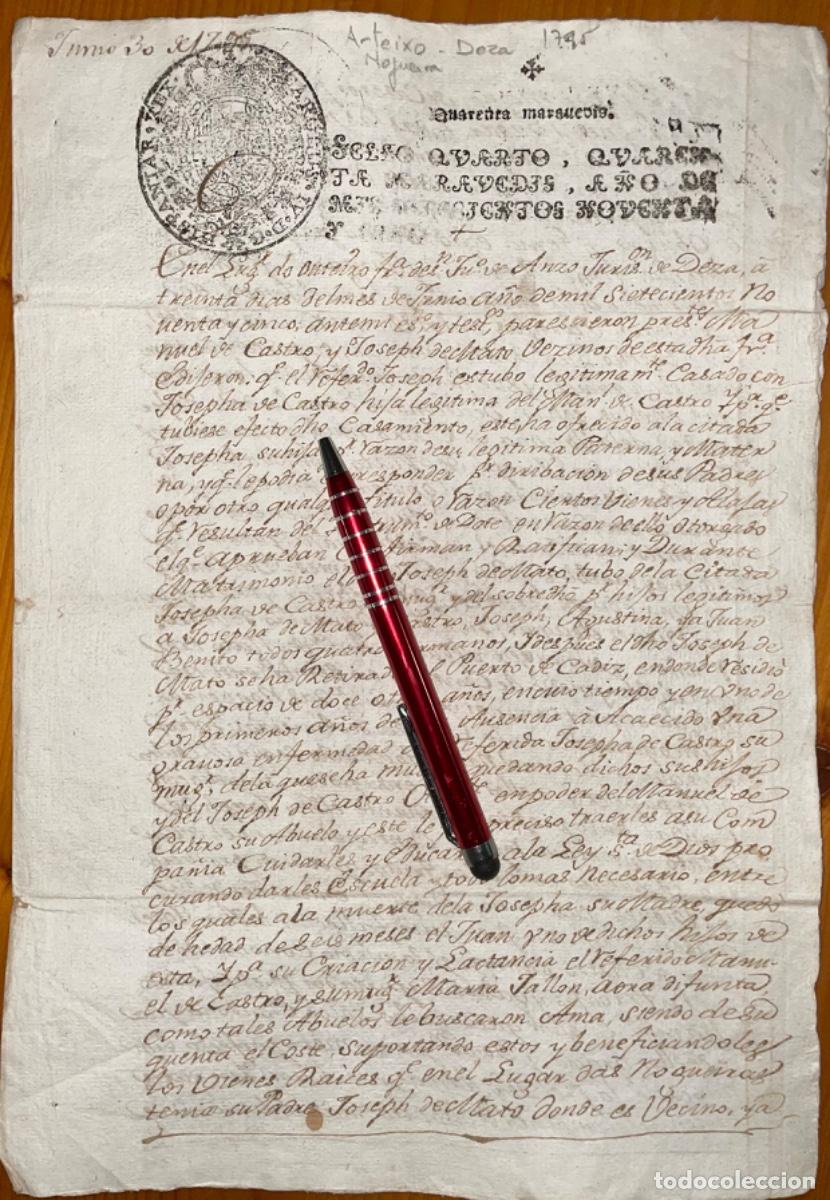 Junio 30 de 1795
Arteixo - Deza 1795
Nogueira
Quarenta marauedis.
SELLO QVARTO, QVAREN-
TA MARAVEDIS, AÑO DE
MIL SETECIENTOS NOVENTA
Y CINCO
HISPANIAR. REX
CAROLUS IV. D. G.
En el Lugr. do Outeiro fra. de Sn. Ju.º de Anzo Jurison. de Deza, á
treinta dias del mes de Junio año de mil Sietecientos No
uenta y cinco, antemi esno. y testos. parescieron prestes. Ma
nuel de Castro, y Joseph de Mato Vezinos de esta dha fra.
Edijeron. q.e el Referdo. Joseph estubo legitimamte. Casado con
Josepha de Castro hija legitima del Manl. de Castro Ypa. qe.
tubiese efecto dho Casamiento, este ha ofrecido ala citada
Josepha su hija pr. razon de su legitima Paterna, y Mater
na, y q.e le podia corresponder pr. diribación de sus Padres
o por otro qualqr. titulo o razon Ciertos Vienes y Alajas
q.e resultan del Instrumto. de Dote en razon de ello Otorgado
el q.e aprueban Confirman y Ratifican; y Durante
Matrimonio el Joseph de Mato, tubo de la Citada
Josepha de Castro su mugr. y del sobredho pr. hijos legitimos
a Josepha de Mato Castro, Joseph, Agustina, ya Juan
Benito todos quatro hermanos, Y despues el dho Joseph de
Mato se ha Retirado al Puerto de Cadiz, en donde residió
pr. espacio de doce años, en cuio tiempo y en Uno de
los primeros años de Ausencia á Acaecido Una
grauosa enfermedad a la referida Josepha de Castro su
mugr., de la que se ha quedando dichos sus hijos
y del Joseph de Castro en poder del Manuel de
Castro su Abuelo y este le preciso traerles a su Com
pañia Cuidarles y educarles a la Ley Sta. de Dios pro
curando darles Escuela y todo lo mas Necesario, entre
los quales a la muerte de la Josepha su Madre, quedó
de hedad de seis meses el Juan Uno de dichos hijos de
esta, Ypa. su Criacion y Lactancia el referido Manu-
el de Castro, y su mugr. Maria Tallon, aora difunta
como tales Abuelos le buscaron Ama, siendo de su
quenta el Coste, suportando estos y beneficiandoles
los Vienes Raices q.e en el Lugar das Nogueiras
tenia su Padre Joseph de Mato donde es Vecino, ya
todocoleccion.net